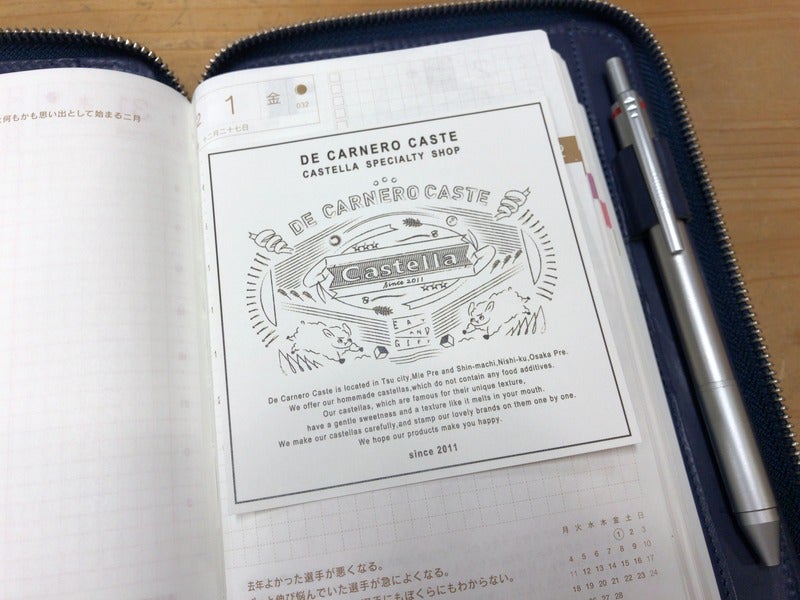 何もかも思い出として始まる二月
1
金
032
十二月二十七日
DE CARNERO CASTE
CASTELLA SPECIALTY SHOP
DE CARNERO CASTE
Castella
Since 2011
EAT
AND
GIFT
De Carnero Caste is located in Tsu city,Mie Pre and Shin-machi,Nishi-ku,Osaka Pre.
We offer our homemade castellas,which do not contain any food additives.
Our castellas, which are famous for their unique texture,
have a gentle sweetness and a texture like it melts in your mouth.
We make our castellas carefully,and stamp our lovely brands on them one by one.
We hope our products make you happy.
since 2011
去年よかった選手が悪くなる。
伸び悩んでいた選手が急によくなる。
選手にもぼくらにもわからない。
月 火 水 木 金 土 日
1 2 3
4 5 6 7 8 9 10
11 12 13 14 15 16 17
18 19 20 21 22 23 24